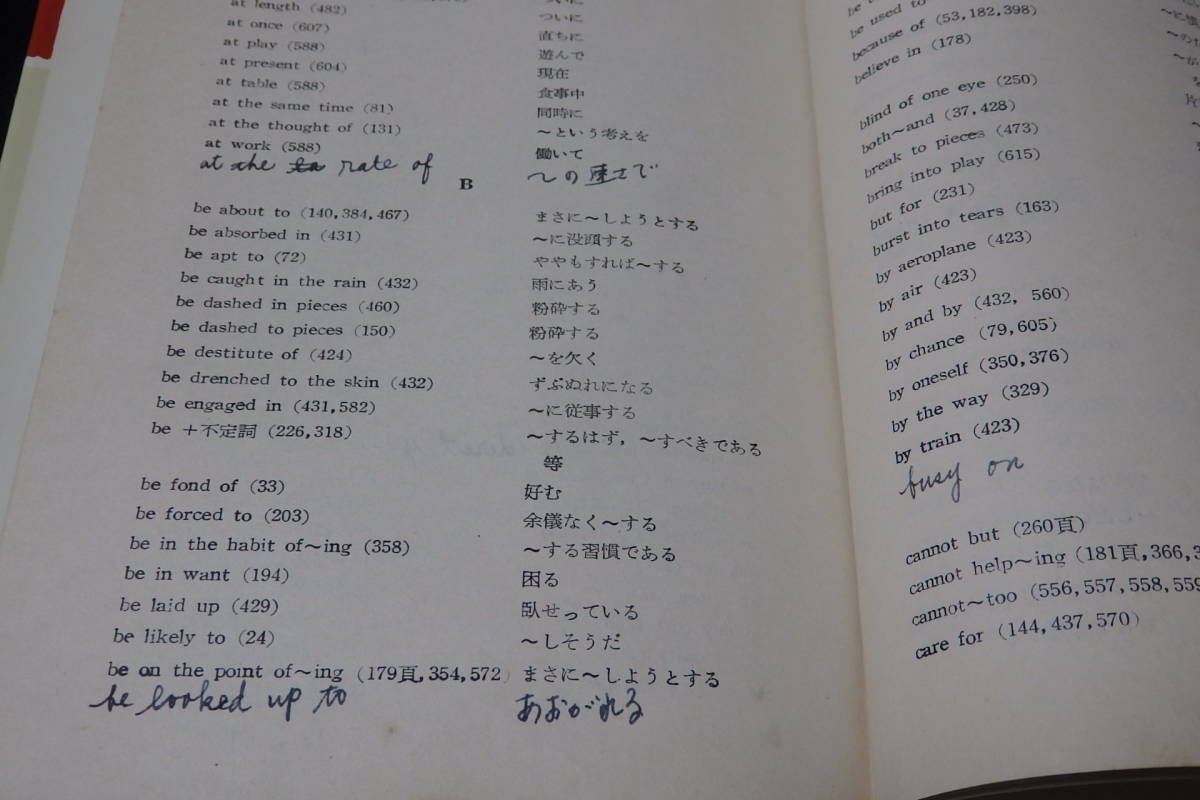 at length (482) ついに
at once (607) 直ちに
at play (588) 遊んで
at present (604) 現在
at table (588) 食事中
at the same time (81) 同時に
at the thought of (131) 〜という考えを
at work (588) 働いて
at the rate of 〜の速さで
B
be about to (140,384,467) まさに〜しようとする
be absorbed in (431) 〜に没頭する
be apt to (72) ややもすれば〜する
be caught in the rain (432) 雨にあう
be dashed in pieces (460) 粉砕する
be dashed to pieces (150) 粉砕する
be destitute of (424) 〜を欠く
be drenched to the skin (432) ずぶぬれになる
be engaged in (431,582) 〜に従事する
be +不定詞 (226,318) 〜するはず,〜すべきである
等
be fond of (33) 好む
be forced to (203) 余儀なく〜する
be in the habit of〜ing (358) 〜する習慣である
be in want (194) 困る
be laid up (429) 臥せっている
be likely to (24) 〜しそうだ
be on the point of〜ing (179頁,354,572) まさに〜しようとする
be looked up to あおがれる
be used to
because of (53,182,398)
believe in (178)
blind of one eye (250)
both〜and (37,428)
break to pieces (473)
bring into play (615)
but for (231)
burst into tears (163)
by aeroplane (423)
by air (423)
by and by (432, 560)
by chance (79,605)
by oneself (350,376)
by the way (329)
by train (423)
busy on
cannot but (260頁)
cannot help〜ing (181頁,366,3
cannot〜too (556,557,558,559
care for (144,437,570)